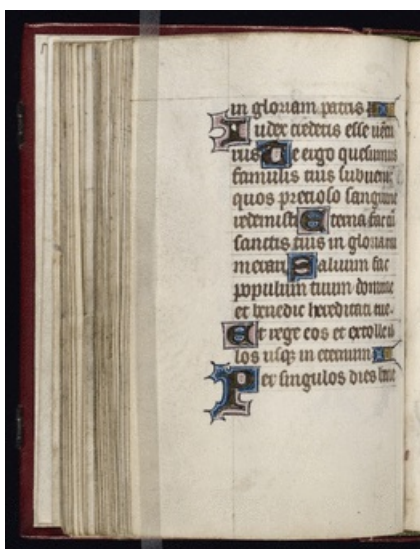 in gloriam patris
Iudex crederis esse uentu
rus Te ergo quesumus
famulis tuis subueni
quos precioso sanguine
redemisti Eterna fac cū
sanctis tuis in gloria nu
merari Saluum fac
populum tuum domine
et benedic hereditati tue.
Et rege eos et extolle il
los usq; in eternum
Per singulos dies bene